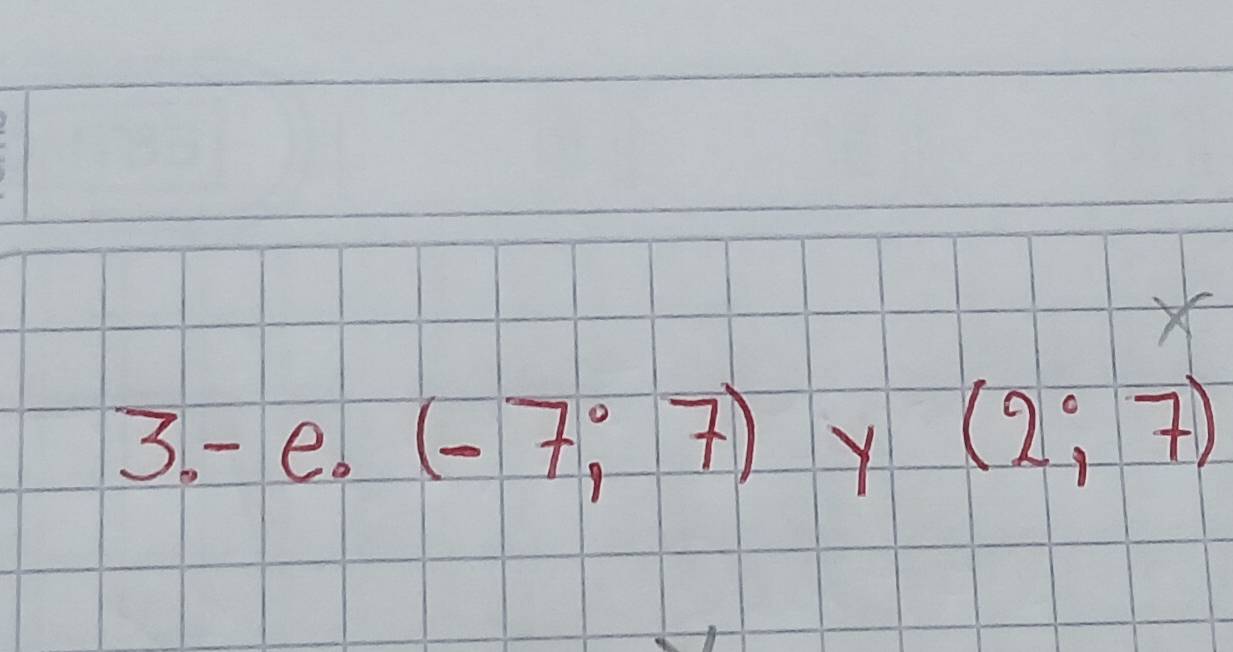 3.- e. (-7; 7) y (2; 7)